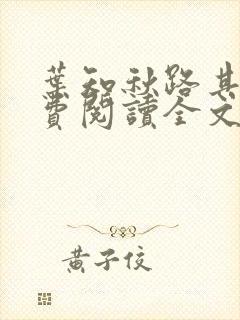 葉知秋路其
費閱讀全文
黃子佼